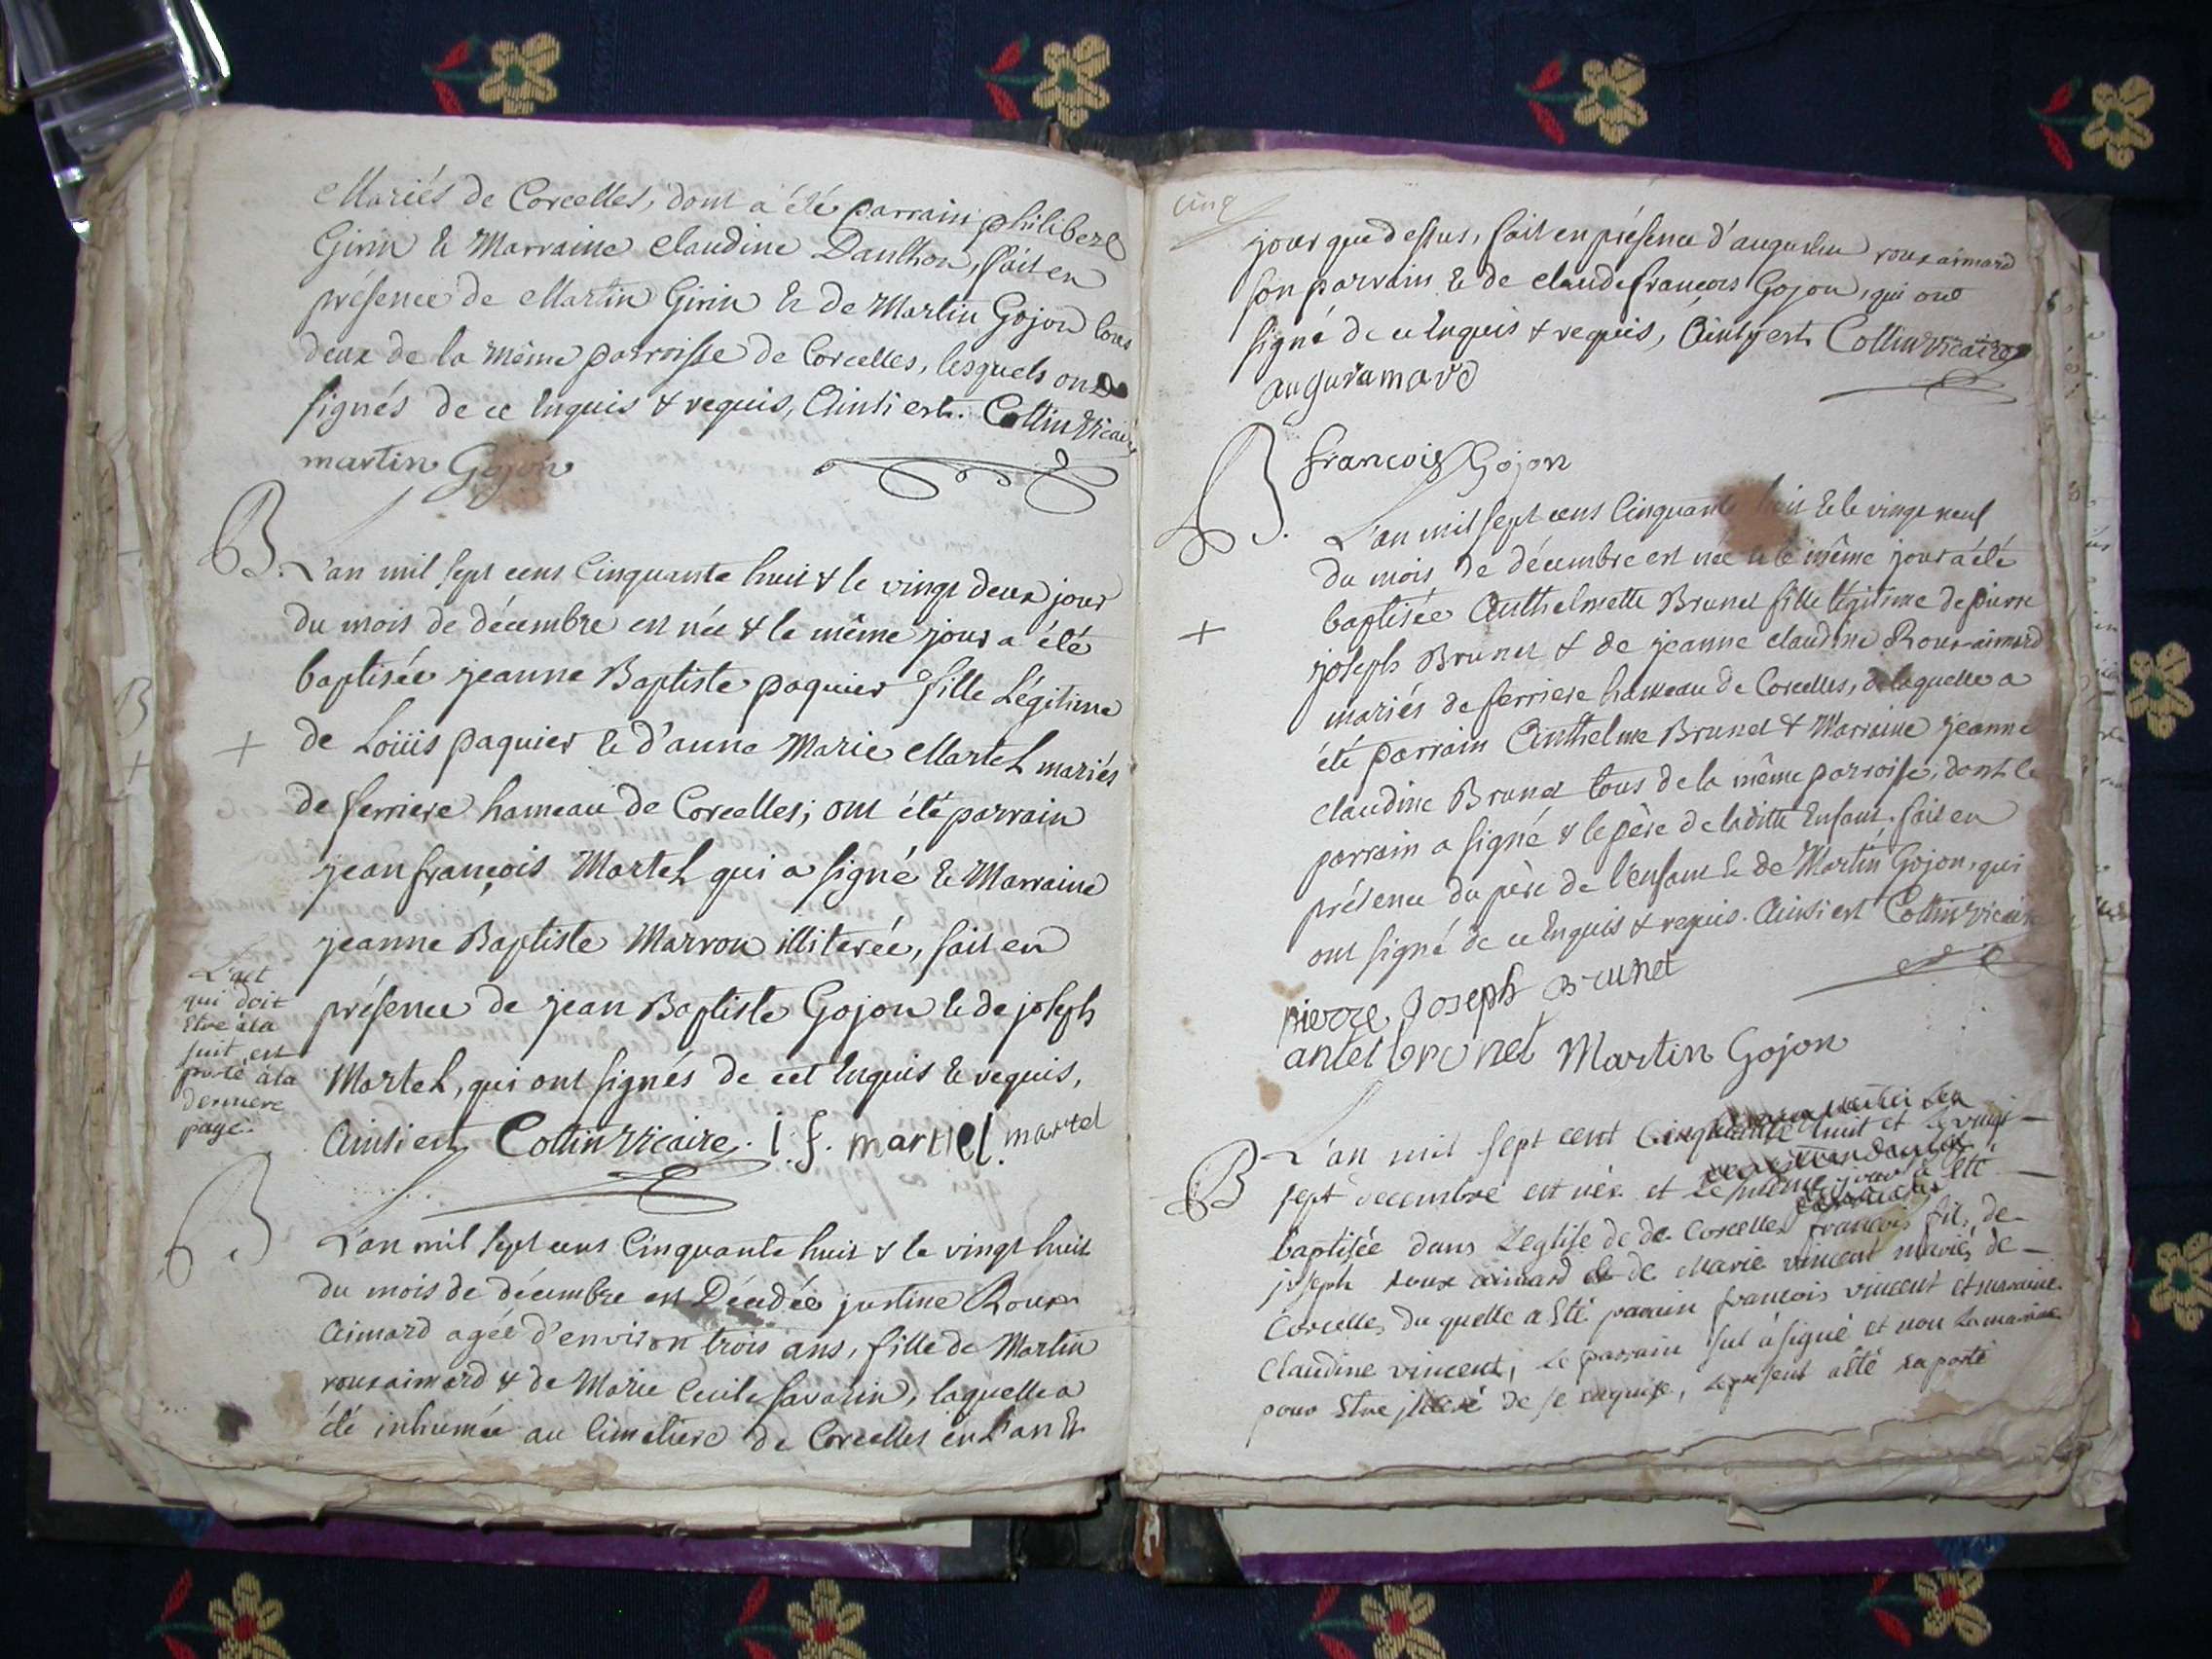 Mariés de Corcelles, dont a été parrain philibert
Girin & Marraine Claudine Danthon, fait en
présence de Martin Girin & de Martin Gojon tous
deux de la même parroisse de Corcelles, lesquels ont
signés de ce Enquis & requis, Ainsi est. Collin Vicaire
martin Gojon
B. L'an mil sept cens Cinquante huit & le vingt deux jour
du mois de décembre est née & le même jour a été
baptisée jeanne Baptiste paquier fille Légitime
+ de Loüis paquier & d'anne Marie Martel mariés
de ferriere hameau de Corcelles; ont été parrain
jean françois Martel qui a signé & Marraine
jeanne Baptiste Marron illiterée, fait en
présence de jean Baptiste Gojon & de joseph
Martel, qui ont signés de cet Enquis & requis,
Ainsi est Collin Vicaire. i. f. martel. martel
L'act
qui doit
Etre à la
suit est
porté à la
derniere
page.
B. L'an mil sept cens Cinquante huit & le vingt huit
du mois de décembre est Décédée justine Roux
Aimard agée d'environ trois ans, fille de Martin
rouxaimard & de Marie Cecile Savarin, laquelle a
été inhumée au Cimetiere de Corcelles en L'an &
cinq
jour que dessus, fait en présence d'augustin rouxaimard
son parrain & de claude françois Gojon, qui ont
signé de ce Enquis & requis, Ainsy est Collin vicaire
francois Gojon
B. L'an mil sept cens Cinquante huit & le vingt neuf
du mois de décembre est née & le même jour a été
baptisée Anthelmette Brunet fille légitime de pierre
+ joseph Brunet & de jeanne claudine Roux-aimard
mariés de ferriere hameau de Corcelles, de laquelle a
été parrain Anthelme Brunet & Marraine jeanne
claudine Brunet tous de la même parroisse, dont le
parrain a signé & le père de laditte Enfant. fait en
présence du père de l'enfant & de Martin Gojon, qui
ont signé de ce Enquis & requis. Ainsi est Collin vicaire
pierre Joseph Brunet
antel brunet Martin Gojon
B L'an mil sept cent Cinquante huit et le vingt
sept decembre est née et le même jour a Eté
baptisée dans L'eglise de de Corcelles francois fils de
joseph roux aimard de Marie vincent mariés de
Corcelles, du quelle a Eté parain francois vincent et maraine
Claudine vincent, Le parrain sul à signé et non La maraine
pour Etre de se enquise, Le present a été raporté